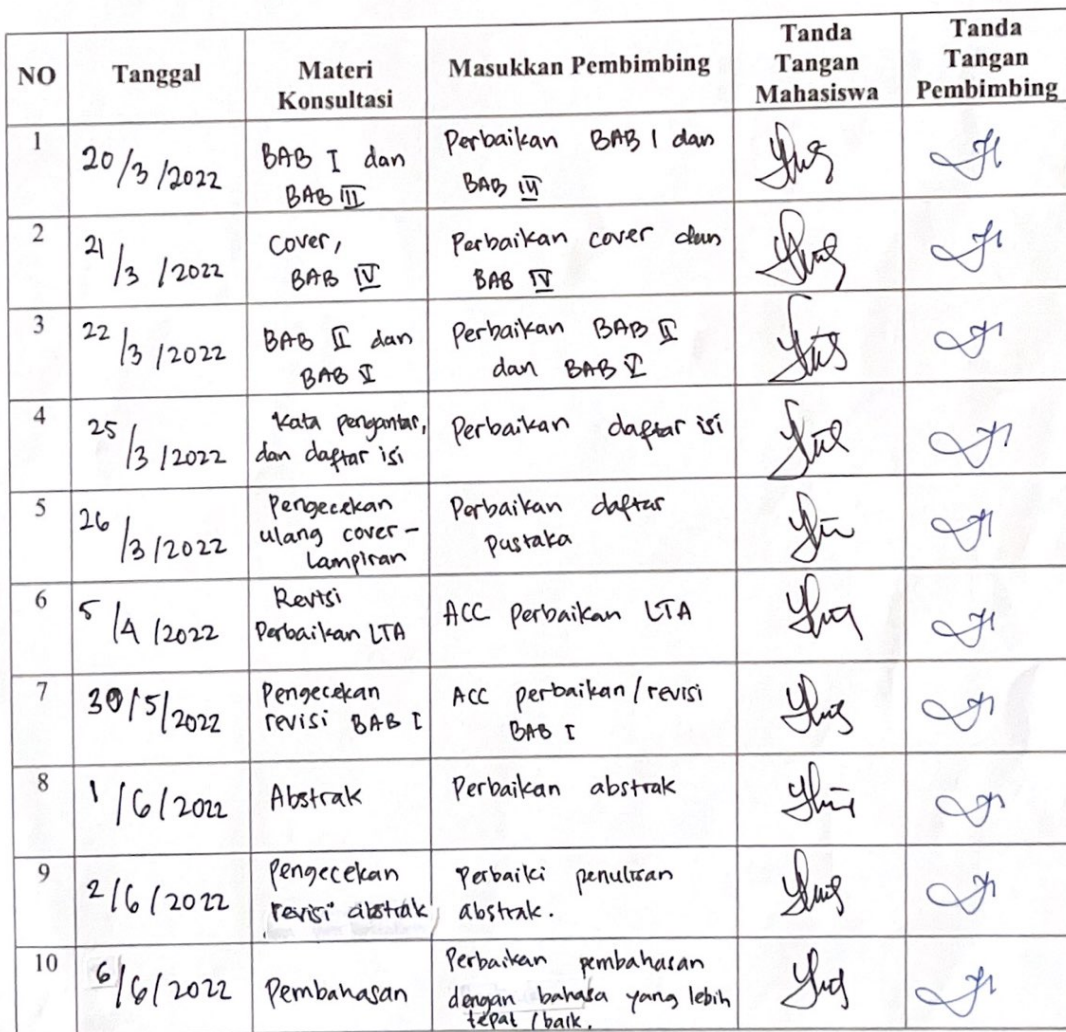 NO Tanggal Materi Konsultasi Masukkan Pembimbing Tanda Tangan Mahasiswa Tanda Tangan Pembimbing
1 20/3/2022 BAB I dan BAB III Perbaikan BAB I dan BAB III
2 21/3/2022 Cover, BAB IV Perbaikan cover dan BAB IV
3 22/3/2022 BAB II dan BAB V Perbaikan BAB II dan BAB V
4 25/3/2022 Kata pengantar, dan daftar isi Perbaikan daftar isi
5 26/3/2022 Pengecekan ulang cover - Lampiran Perbaikan daftar Pustaka
6 5/4/2022 Revisi Perbaikan LTA ACC perbaikan LTA
7 30/5/2022 Pengecekan revisi BAB I ACC perbaikan/revisi BAB I
8 1/6/2022 Abstrak Perbaikan abstrak
9 2/6/2022 Pengecekan revisi abstrak Perbaiki penulisan abstrak.
10 6/6/2022 Pembahasan Perbaikan pembahasan dengan bahasa yang lebih tepat/baik.